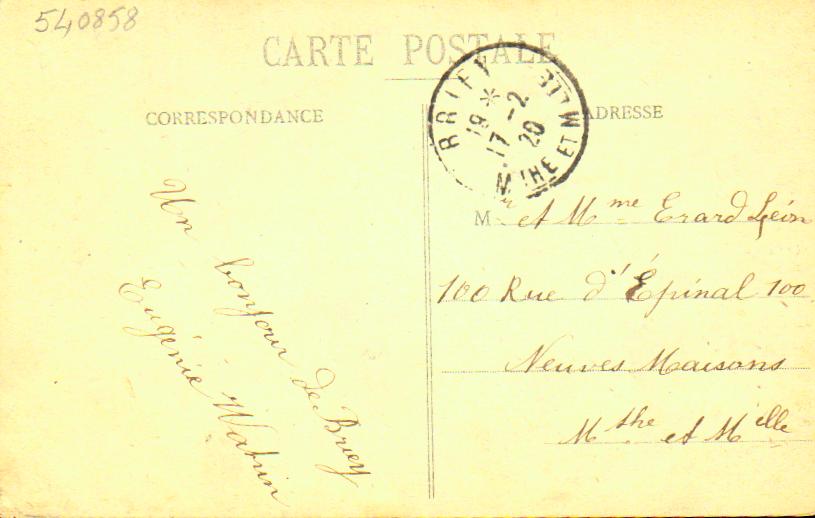 540858
CARTE POSTALE
CORRESPONDANCE
ADRESSE
BRIEY
19 *
17 -2
20
MTHE ET MLLE
Un bonjour de Briey
Eugénie Watrin
Mr et Mme Erard Léon
100 Rue d'Épinal 100
Neuves Maisons
Mthe et Melle